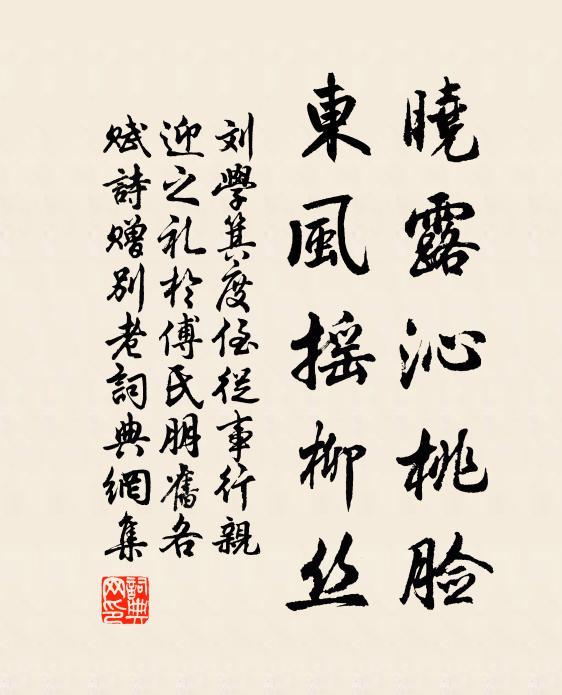 曉露沁桃脸
東風摇柳丝
刘學箕度侄從事行親
迎之礼於傅氏朋舊各
赋詩贈别老詞典網集
詞典网印